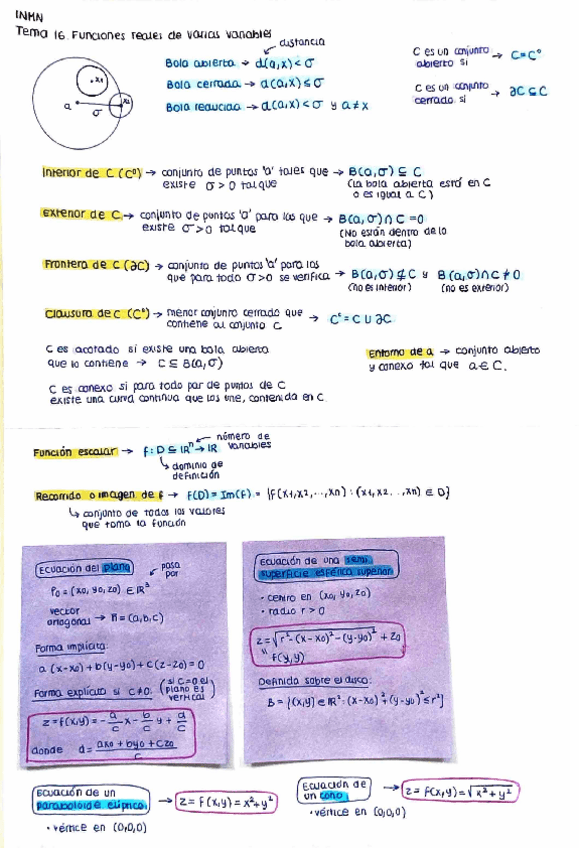 INMN
Tema 16. Funciones reales de varias variables
distancia
a
σ
x1
x2
Bola abierta → d(a,x) < σ
Bola cerrada → d(a,x) ≤ σ
Bola reducida → d(a,x) < σ y a ≠ x
C es un conjunto abierto si → C = C°
C es un conjunto cerrado si → ∂C ⊆ C
Interior de C (C°) → conjunto de puntos 'a' tales que → B(a,σ) ⊆ C
existe σ > 0 tal que
(la bola abierta está en C
o es igual a C)
exterior de C → conjunto de puntos 'a' para los que → B(a,σ) ∩ C = 0
existe σ > 0 tal que
(No están dentro de la
bola abierta)
Frontera de C (∂C) → conjunto de puntos 'a' para los
que para todo σ > 0 se verifica → B(a,σ) ⊄ C y B(a,σ) ∩ C ≠ 0
(no es interior) (no es exterior)
Clausura de C (Cᶜ) → menor conjunto cerrado que
contiene al conjunto C → Cᶜ = C ∪ ∂C
C es acotado si existe una bola abierta
que lo contiene → C ⊆ B(a,σ)
Entorno de a → conjunto abierto
y conexo tal que a ∈ C.
C es conexo si para todo par de puntos de C
existe una curva continua que los une, contenida en C.
Función escalar → f: D ⊆ ℝⁿ → ℝ
número de variables
dominio de
definición
Recorrido o imagen de f → F(D) = Im(F) = {F(x1, x2, ..., xn) : (x1, x2 ..., xn) ∈ D}
conjunto de todos los valores
que toma la función
Ecuación del plano
pasa por
P0 = (x0, y0, z0) ∈ ℝ³
vector
ortogonal → n = (a,b,c)
Forma implícita:
a(x-x0) + b(y-y0) + c(z-z0) = 0
Forma explícita si c≠0: (si c=0 el
plano es
vertical)
z = f(x,y) = -a/c x - b/c y + d/c
donde d = ax0 + by0 + cz0 / c
Ecuación de una semi
superficie esférica superior
• centro en (x0, y0, z0)
• radio r > 0
z = √(r² - (x-x0)² - (y-y0)²) + z0
"
f(y,y)
Definida sobre el disco:
B = {(x,y) ∈ ℝ² : (x-x0)² + (y-y0)² ≤ r²}
Ecuación de un
paraboloide elíptico → z = F(x,y) = x² + y²
• vértice en (0,0,0)
Ecuación de
un cono → z = F(x,y) = √(x² + y²)
• vértice en (0,0,0)